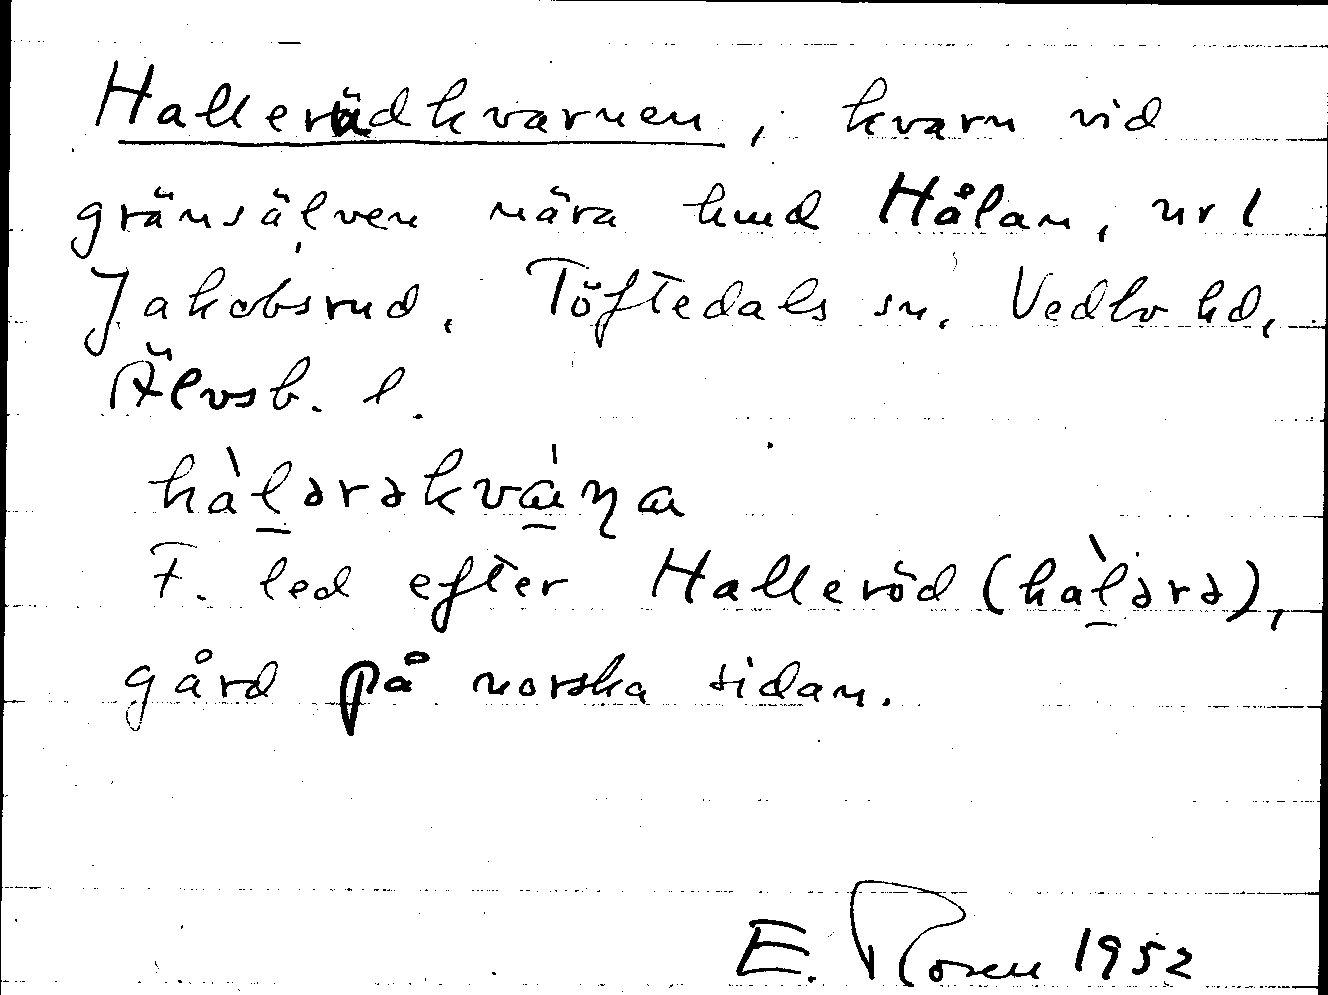 Hallerudkvarnen, kvarn vid
gränsälven nära hmd Hålan, nr 1
Jakobsrud, Töftedals sn, Vedbo hd,
Älvsb. l.
hàl̠ərəkvá̠ɳa
F. led efter Halleröd (hàl̠ərə),
gård på norska sidan.
E. Rosen 1952